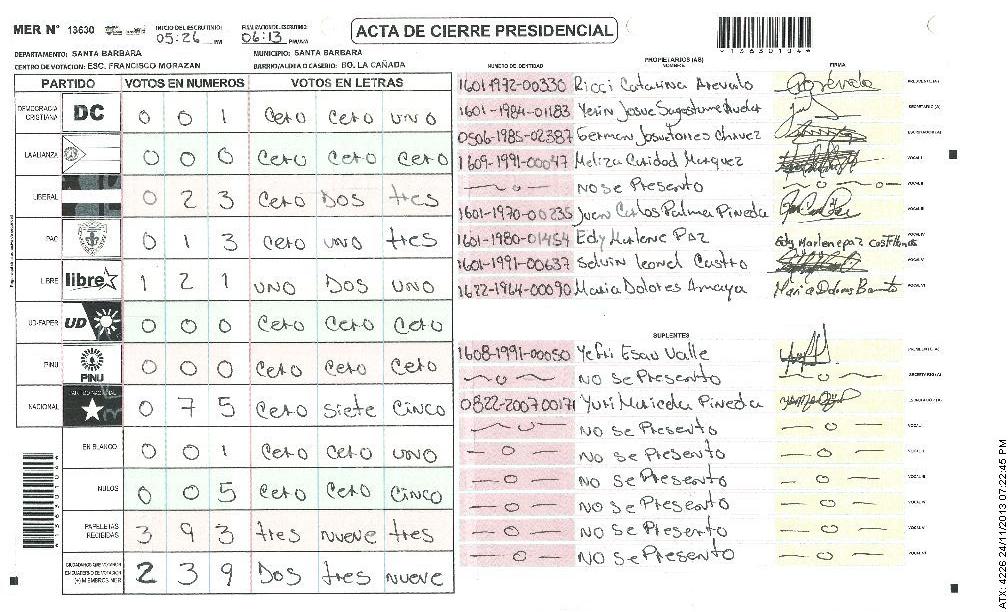 MER N° 13630 INICIO DEL ESCRUTINIO: 05:26 PM FINALIZACION DEL ESCRUTINIO: 06:13 PM/A.M. ACTA DE CIERRE PRESIDENCIAL
DEPARTAMENTO: SANTA BARBARA MUNICIPIO: SANTA BARBARA
CENTRO DE VOTACION: ESC. FRANCISCO MORAZAN BARRIO/ALDEA O CASERIO: BO. LA CAÑADA
PARTIDO VOTOS EN NUMEROS VOTOS EN LETRAS
DEMOCRACIA CRISTIANA DC 0 0 1 Cero Cero UNO
LA ALIANZA 0 0 0 Cero Cero Cero
LIBERAL 0 2 3 Cero DOS tres
PAC 0 1 3 Cero UNO tres
LIBRE libre 1 2 1 UNO DOS UNO
UD-FAPER UD 0 0 0 Cero Cero Cero
PINU PINU 0 0 0 Cero Cero Cero
NACIONAL 0 7 5 Cero Siete CINCO
EN BLANCO 0 0 1 Cero Cero UNO
NULOS 0 0 5 Cero Cero CINCO
PAPELETAS RECIBIDAS 3 9 3 tres nueve tres
CIUDADANOS QUE VOTARON EN CUADERNO DE VOTACION (+) MIEMBROS MER 2 3 9 Dos tres nueve
PROPIETARIOS (AS)
NUMERO DE IDENTIDAD NOMBRE FIRMA
1601-1972-00330 Ricci Catarina Arevalo PRESIDENTE (A)
1601-1984-01183 Yerin Josue SECRETARIO (A)
0506-1985-02387 German Josue Torres Chavez ESCRUTADOR (A)
1609-1991-00047 Meliza Marquez VOCAL I
NO se Presento VOCAL II
1601-1970-00235 Juan Carlos Palma Pineda VOCAL III
1601-1980-01454 Edy Marlene PAZ Edy Marlene paz Castellanos VOCAL IV
1601-1991-00637 Selvin leonel Castro VOCAL V
1622-1964-00090 Maria Dolores Amaya VOCAL VI
SUPLENTES
1608-1991-00050 Yefri Esau Valle PRESIDENTE (A)
NO se Presento SECRETARIO (A)
0822-2007-00171 Yuri Maricela Pineda ESCRUTADOR (A)
NO se Presento VOCAL I
NO se Presento VOCAL II
NO se Presento VOCAL III
NO se Presento VOCAL IV
NO se Presento VOCAL V
NO se Presento VOCAL VI
ATX: 4226 24/11/2013 07:22:45 PM